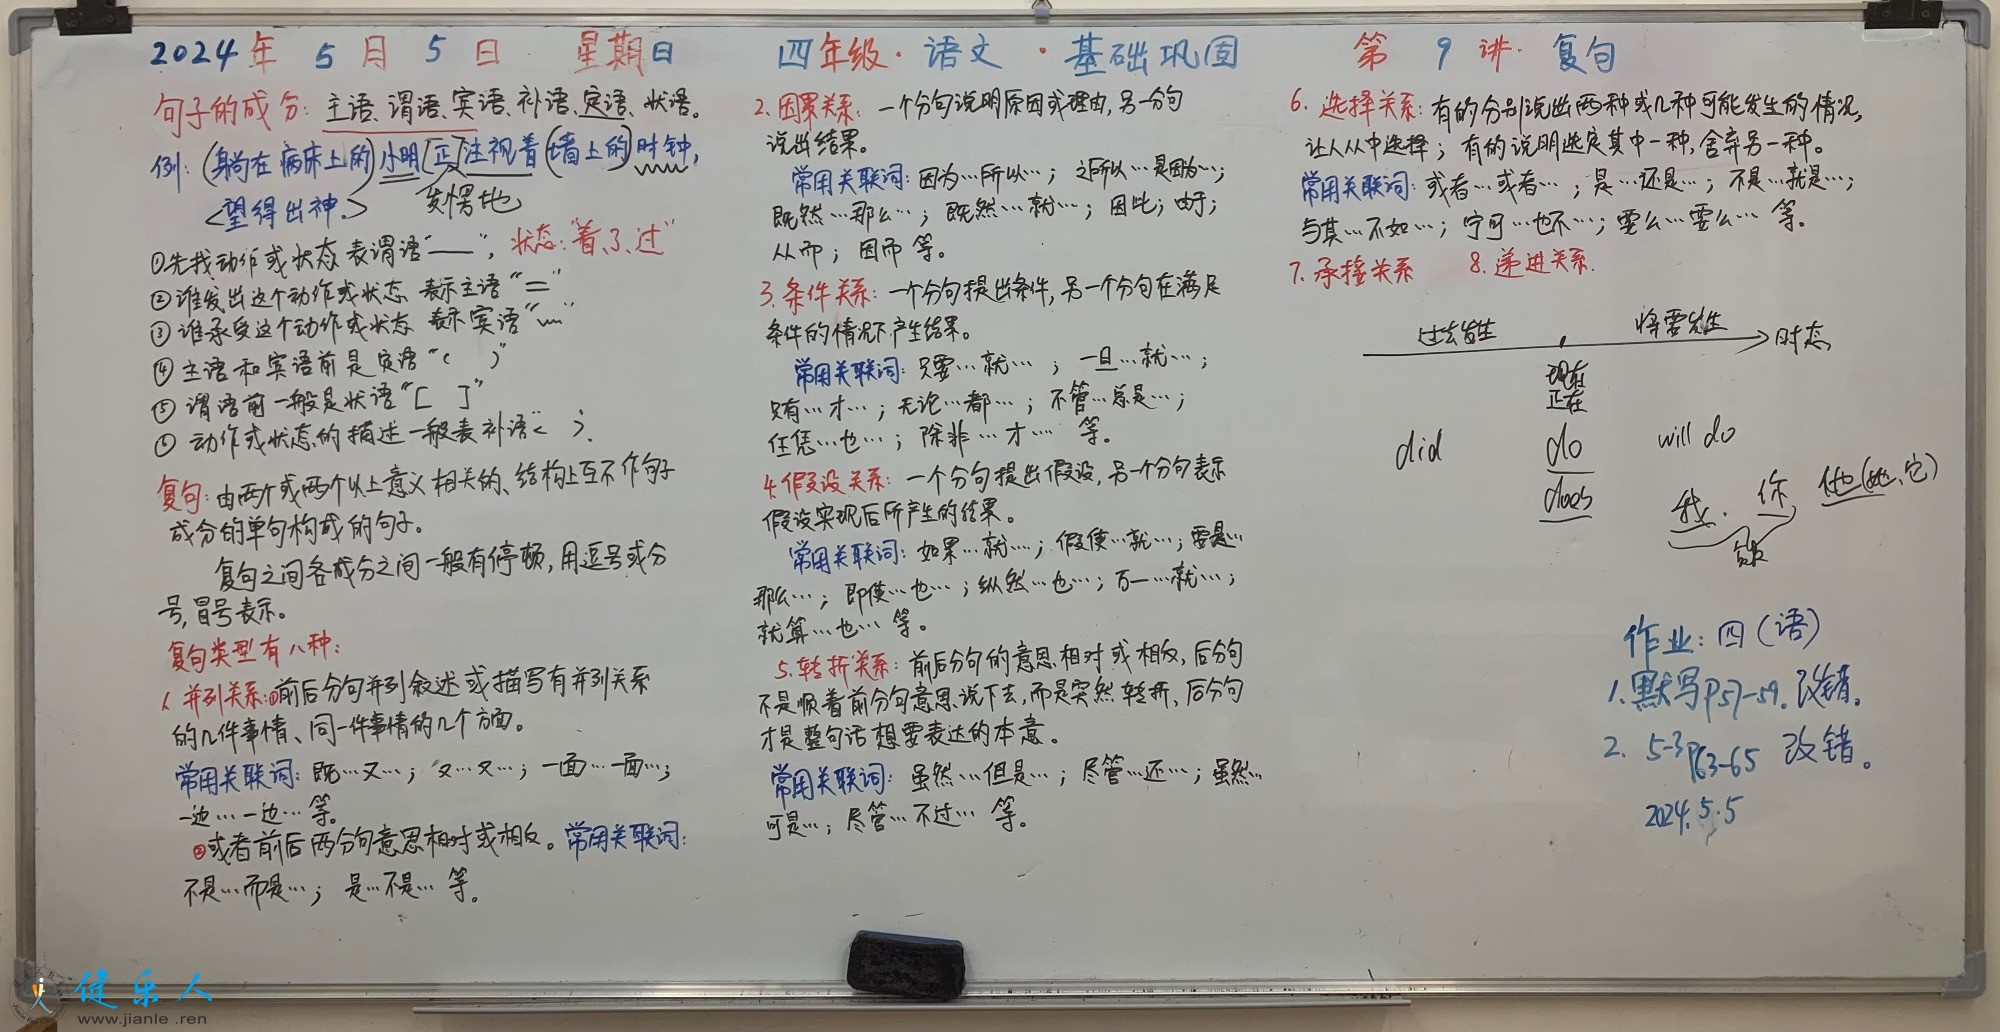 2024年5月5日 星期日 四年级·语文·基础巩固 第9讲·复句
句子的成分：主语、谓语、宾语、补语、定语、状语。
例：(躺在病床上的)小明[正]注视着(墙上的)时钟，
<望得出神.>
①先找动作或状态 表谓语“——”，状态：“着、了、过”
②谁发出这个动作或状态 表示主语“＝”
③谁承受这个动作或状态 表示宾语“﹏”
④主语和宾语前是定语“( )”
⑤谓语前一般是状语“[ ]”
⑥动作或状态的描述一般表补语< >.
复句：由两个或两个以上意义相关的、结构上互不作句子
成分的单句构成的句子。
复句之间各成分之间一般有停顿，用逗号或分
号，冒号表示。
复句类型有八种：
1. 并列关系：①前后分句并列叙述或描写有并列关系
的几件事情、同一件事情的几个方面。
常用关联词：既…又…；又…又…；一面…一面…；
一边…一边…等。
②或者前后两分句意思相对或相反。常用关联词：
不是…而是…；是…不是…等。
2. 因果关系：一个分句说明原因或理由，另一分句
说出结果。
常用关联词：因为…所以…；之所以…是因为…；
既然…那么…；既然…就…；因此；由于；
从而；因而 等。
3. 条件关系：一个分句提出条件，另一个分句在满足
条件的情况下产生结果。
常用关联词：只要…就…；一旦…就…；
只有…才…；无论…都…；不管…总是…；
任凭…也…；除非…才… 等。
4. 假设关系：一个分句提出假设，另一个分句表示
假设实现后所产生的结果。
常用关联词：如果…就…；假使…就…；要是…
那么…；即使…也…；纵然…也…；万一…就…；
就算…也… 等。
5. 转折关系：前后分句的意思相对或相反，后分句
不是顺着前分句意思说下去，而是突然转折，后分句
才是整句话想要表达的本意。
常用关联词：虽然…但是…；尽管…还…；虽然…
可是…；尽管…不过… 等。
6. 选择关系：有的分别说出两种或几种可能发生的情况，
让人从中选择；有的说明选定其中一种，舍弃另一种。
常用关联词：或者…或者…；是…还是…；不是…就是…；
与其…不如…；宁可…也不…；要么…要么… 等。
7. 承接关系 8. 递进关系.
过去发生 将要发生 时态
现在
正在
did do will do
does
我. 你 他(她、它)
作业：四(语)
1. 默写P57-59. 改错。
2. 5-3 P63-65 改错。
2024.5.5
健乐人
www.jianle .ren